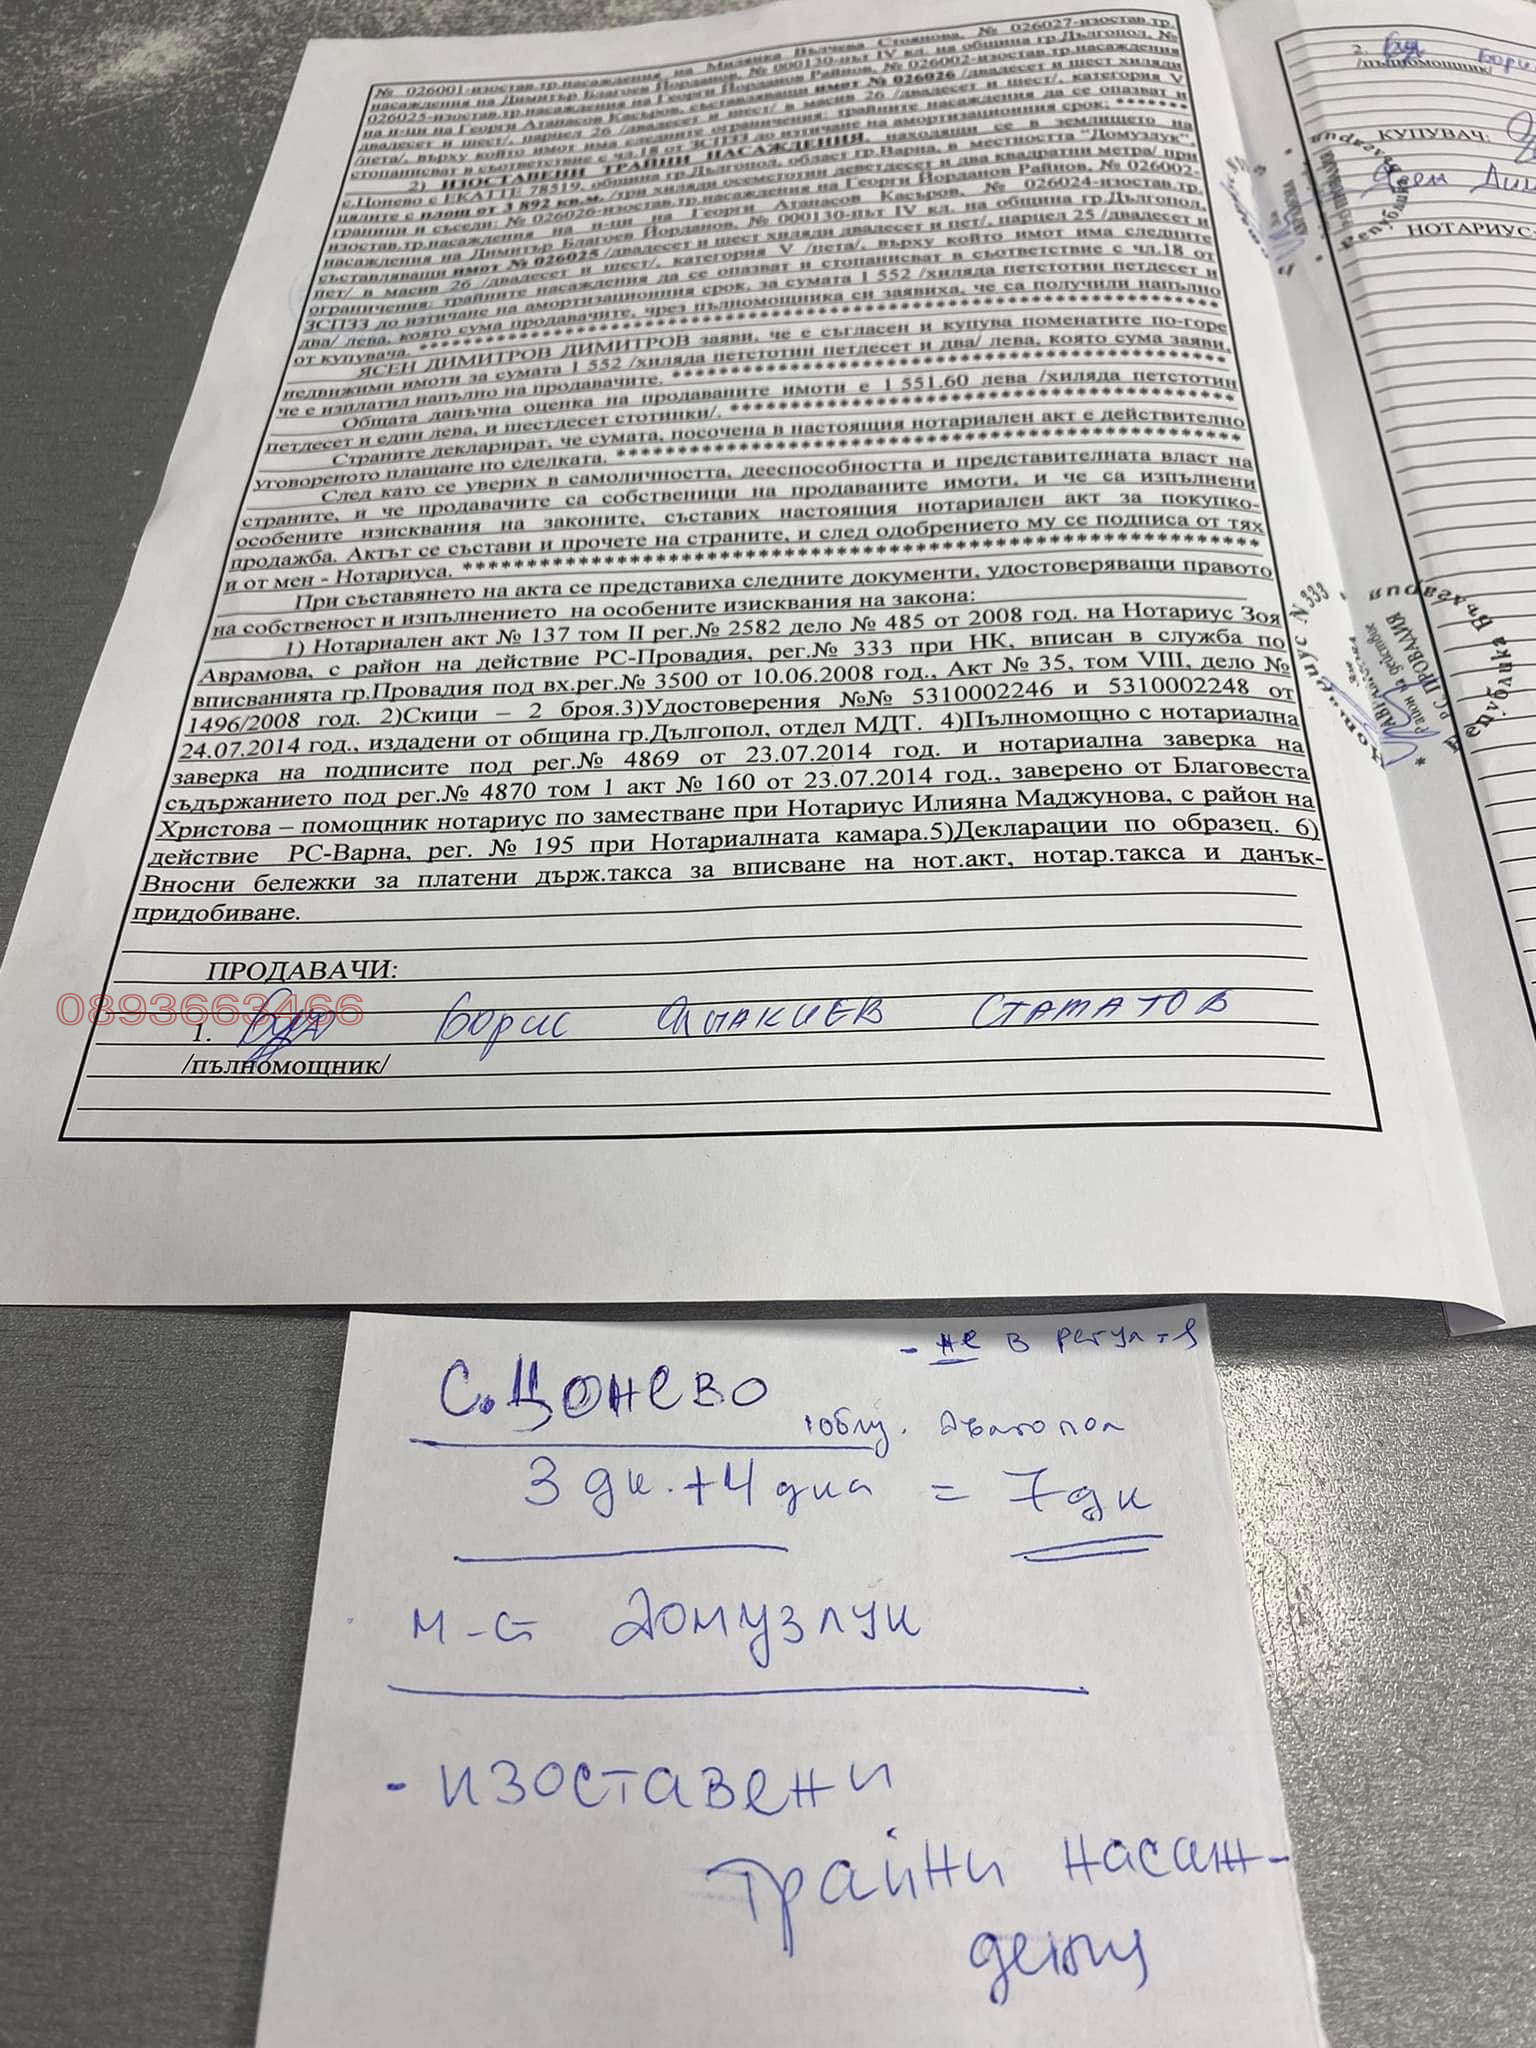 № 026001-изостав.тр.насаждения на Милянка Вълчева Стоянова, № 026027-изостав.тр.
насаждения на Димитър Благоев Йорданов, № 000130-път IV кл. на община гр.Дългопол, №
026025-изостав.тр.насаждения на Георги Йорданов Райнов, № 026002-изостав.тр.насаждения
на н-ци на Георги Атанасов Касъров, съставляващи имот № 026026 /двадесет и шест хиляди
двадесет и шест/, парцел 26 /двадесет и шест/ в масив 26 /двадесет и шест/, категория V
/пета/, върху който имот има следните ограничения: трайните насаждения да се опазват и
стопанисват в съответствие с чл.18 от ЗСПЗЗ до изтичане на амортизационния срок; *******
2) ИЗОСТАВЕНИ ТРАЙНИ НАСАЖДЕНИЯ, находящи се в землището на
с.Цонево с ЕКАТТЕ 78519, община гр.Дългопол, област гр.Варна, в местността "Домузлук",
цялите с площ от 3 892 кв.м. /три хиляди осемстотин деветдесет и два квадратни метра/ при
граници и съседи: № 026026-изостав.тр.насаждения на Георги Йорданов Райнов, № 026002-
изостав.тр.насаждения на н-ци на Георги Атанасов Касъров, № 026024-изостав.тр.
насаждения на Димитър Благоев Йорданов, № 000130-път IV кл. на община гр.Дългопол,
съставляващи имот № 026025 /двадесет и шест хиляди двадесет и пет/, парцел 25 /двадесет и
пет/ в масив 26 /двадесет и шест/, категория V /пета/, върху който имот има следните
ограничения: трайните насаждения да се опазват и стопанисват в съответствие с чл.18 от
ЗСПЗЗ до изтичане на амортизационния срок, за сумата 1 552 /хиляда петстотин петдесет и
два/ лева, която сума продавачите, чрез пълномощника си заявиха, че са получили напълно
от купувача. ****************************************************************
ЯСЕН ДИМИТРОВ ДИМИТРОВ заяви, че е съгласен и купува поменатите по-горе
недвижими имоти за сумата 1 552 /хиляда петстотин петдесет и два/ лева, която сума заяви,
че е изплатил напълно на продавачите. *********************************************
Общата данъчна оценка на продаваните имоти е 1 551.60 лева /хиляда петстотин
петдесет и един лева, и шестдесет стотинки/. ***************************************
Страните декларират, че сумата, посочена в настоящия нотариален акт е действително
уговореното плащане по сделката. ************************************************
След като се уверих в самоличността, дееспособността и представителната власт на
страните, и че продавачите са собственици на продаваните имоти, и че са изпълнени
особените изисквания на законите, съставих настоящия нотариален акт за покупко-
продажба. Актът се състави и прочете на страните, и след одобрението му се подписа от тях
и от мен - Нотариуса. *********************************************************
При съставянето на акта се представиха следните документи, удостоверяващи правото
на собственост и изпълнението на особените изисквания на закона:
1) Нотариален акт № 137 том II рег.№ 2582 дело № 485 от 2008 год. на Нотариус Зоя
Аврамова, с район на действие РС-Провадия, рег.№ 333 при НК, вписан в служба по
вписванията гр.Провадия под вх.рег.№ 3500 от 10.06.2008 год., Акт № 35, том VIII, дело №
1496/2008 год. 2)Скици – 2 броя.3)Удостоверения №№ 5310002246 и 5310002248 от
24.07.2014 год., издадени от община гр.Дългопол, отдел МДТ. 4)Пълномощно с нотариална
заверка на подписите под рег.№ 4869 от 23.07.2014 год. и нотариална заверка на
съдържанието под рег.№ 4870 том 1 акт № 160 от 23.07.2014 год., заверено от Благовеста
Христова – помощник нотариус по заместване при Нотариус Илияна Маджунова, с район на
действие РС-Варна, рег. № 195 при Нотариалната камара.5)Декларации по образец. 6)
Вносни бележки за платени държ.такса за вписване на нот.акт, нотар.такса и данък-
придобиване.
ПРОДАВАЧИ:
0893663466
1. Борис СТАМАТОВ
/пълномощник/
2. Борис
/пълномощник/
КУПУВАЧ:
Ясен Дим
НОТАРИУС:
Нотариус N 333
Република България
Район на действие
Р.С. ПРОВАДИЯ
- не в регул-я
с. Цонево
общ. Дългопол
3 дк. + 4 дка = 7 дк
м-ст Домузлук
- изоставени
трайни насаж-
дения